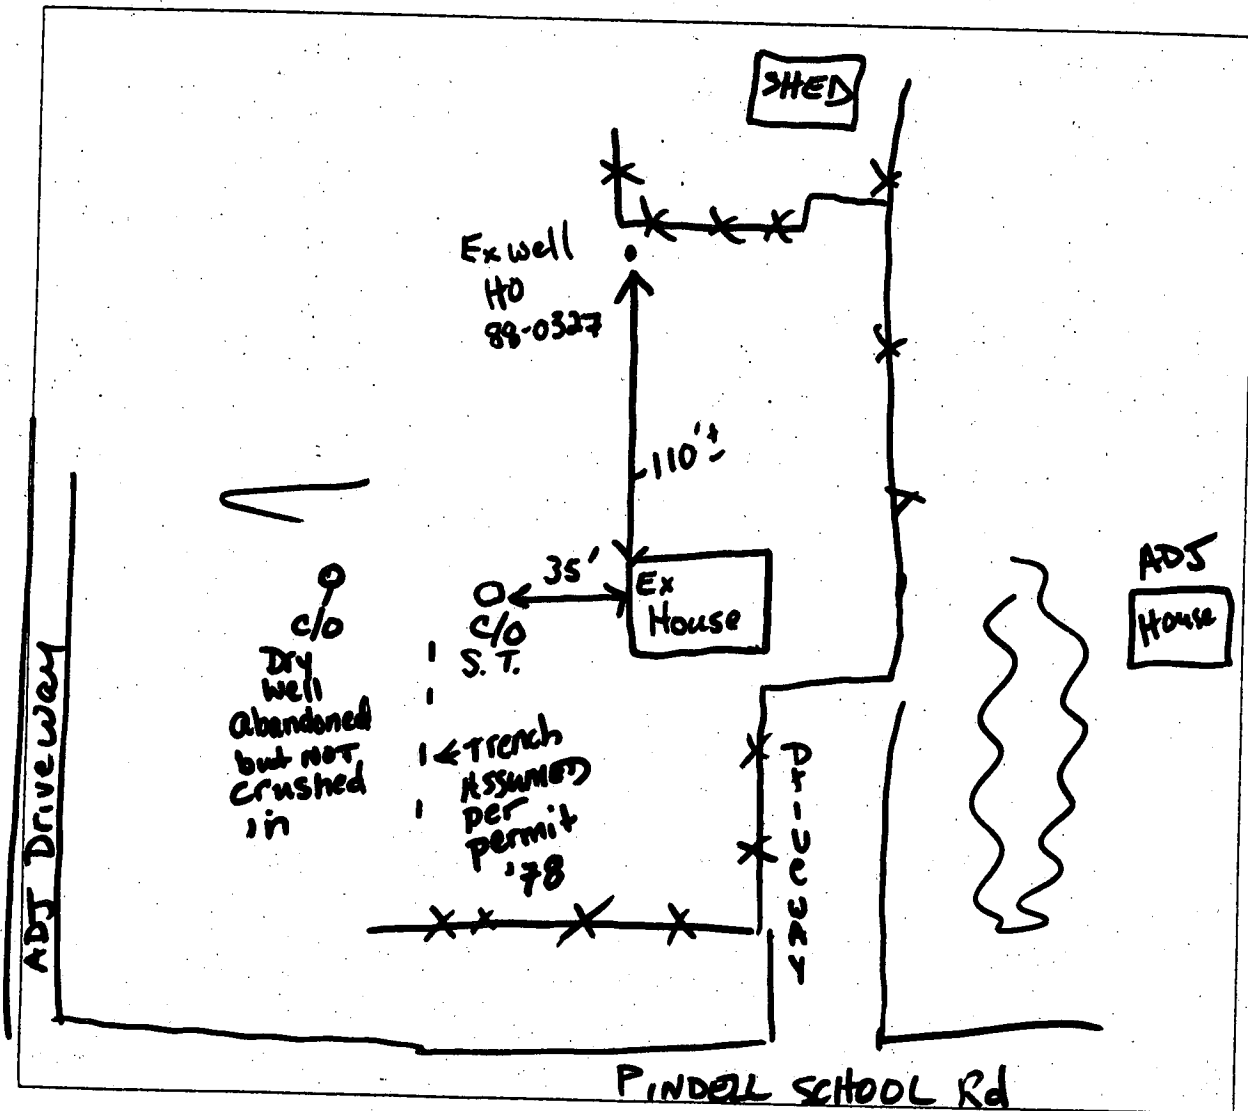 SHED
Ex well
HO
88-0327
110'±
35'
Ex
House
ADJ
House
c/o
S.T.
c/o
Dry
well
abandoned
but NOT
crushed
in
Trench
ASSUMED
per
permit
'78
ADJ Driveway
Driveway
PINDELL SCHOOL Rd